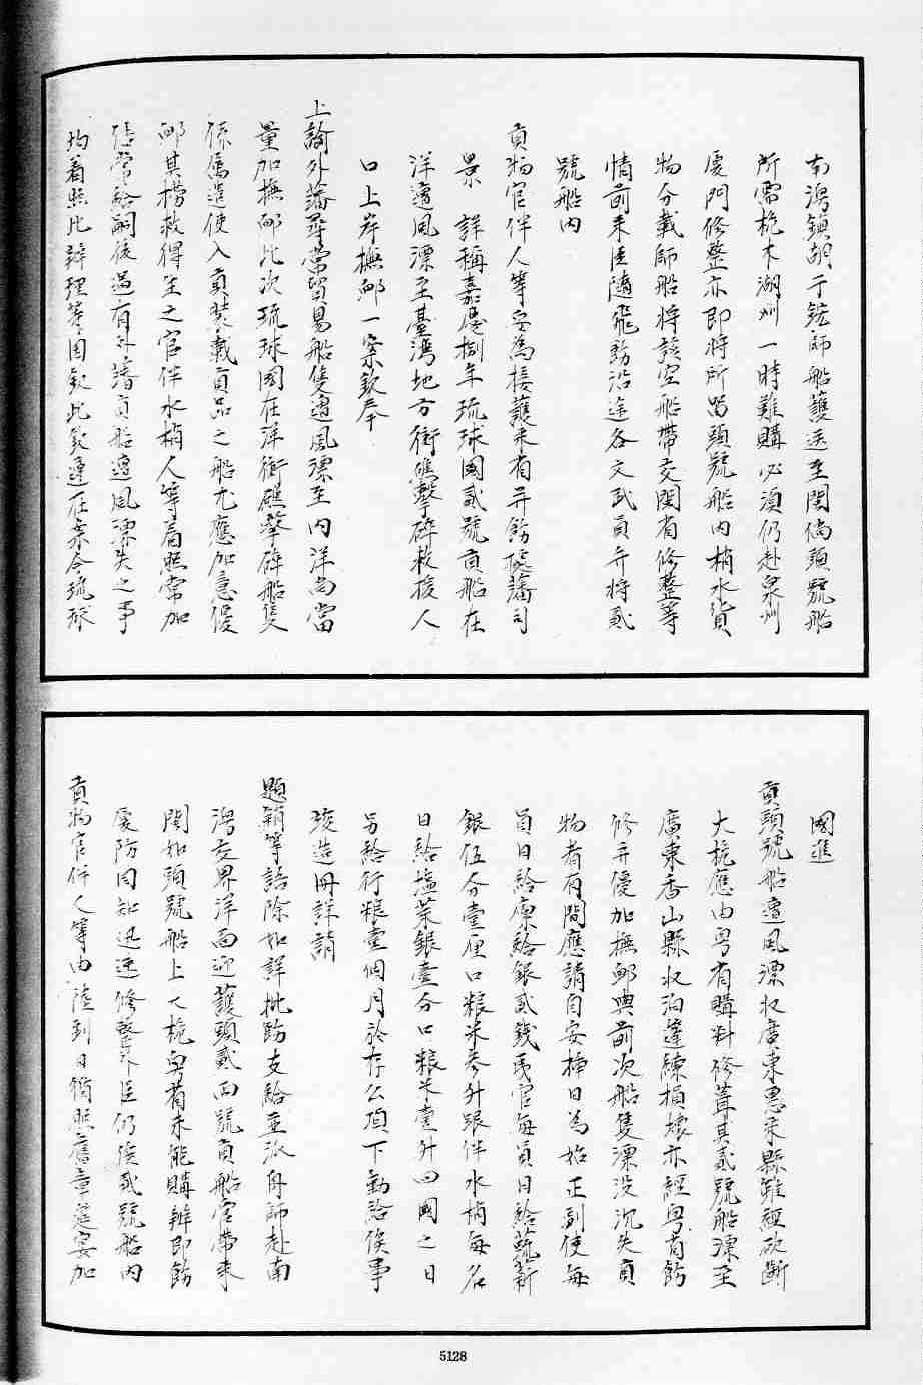 南澳鎮胡于鋐師船護送至閩倘頭號船
所需桅木湖州一時難購必須仍赴泉州
廈門修整亦即將所留頭號船內梢水貨
物分載師船將該空船帶交閩省修整等
情前來臣隨飛飭沿途各文武員弁將貳
號船內
貢物官伴人等妥為接護來省并飭據藩司
景　詳稱嘉慶捌年琉球國貳號貢船在
洋遭風漂至臺灣地方衝礁擊碎救援人
口上岸撫卹一案欽奉
上諭外藩尋常貿易船隻遭風漂至內洋尚當
量加撫卹此次琉球國在洋衝礁擊碎船隻
係屬遣使入貢裝載貢品之船尤應加意優
卹其撈救得生之官伴水梢人等着照常加
倍賞給嗣後遇有外藩貢船遭風漂失之事
均着照此辦理等因欽此欽遵在案今琉球
國進
貢頭號船遭風漂收廣東惠來縣雖經砍斷
大桅應由粵省購料修葺其貳號船漂至
廣東香山縣收泊篷練損壞亦經粵省飭
修并優加撫卹與前次船隻漂沒沉失貢
物者有間應請自安插日為始正副使每
員日給廩給銀貳錢夷官每員日給蔬薪
銀伍分壹厘口粮米叁升跟伴水梢每名
日給塩菜銀壹分口粮米壹升回國之日
另給行粮壹個月於存公項下動給俟事
竣造冊詳請
題銷等語除如詳批飭支給並派舟師赴南
澳交界洋面迎護頭貳兩號貢船官帶來
閩如頭號船上大桅粵省未能購辦即飭
廈防同知迅速修整外臣仍俟貳號船內
貢物官伴人等由陸到日循照舊章筵宴加
5128